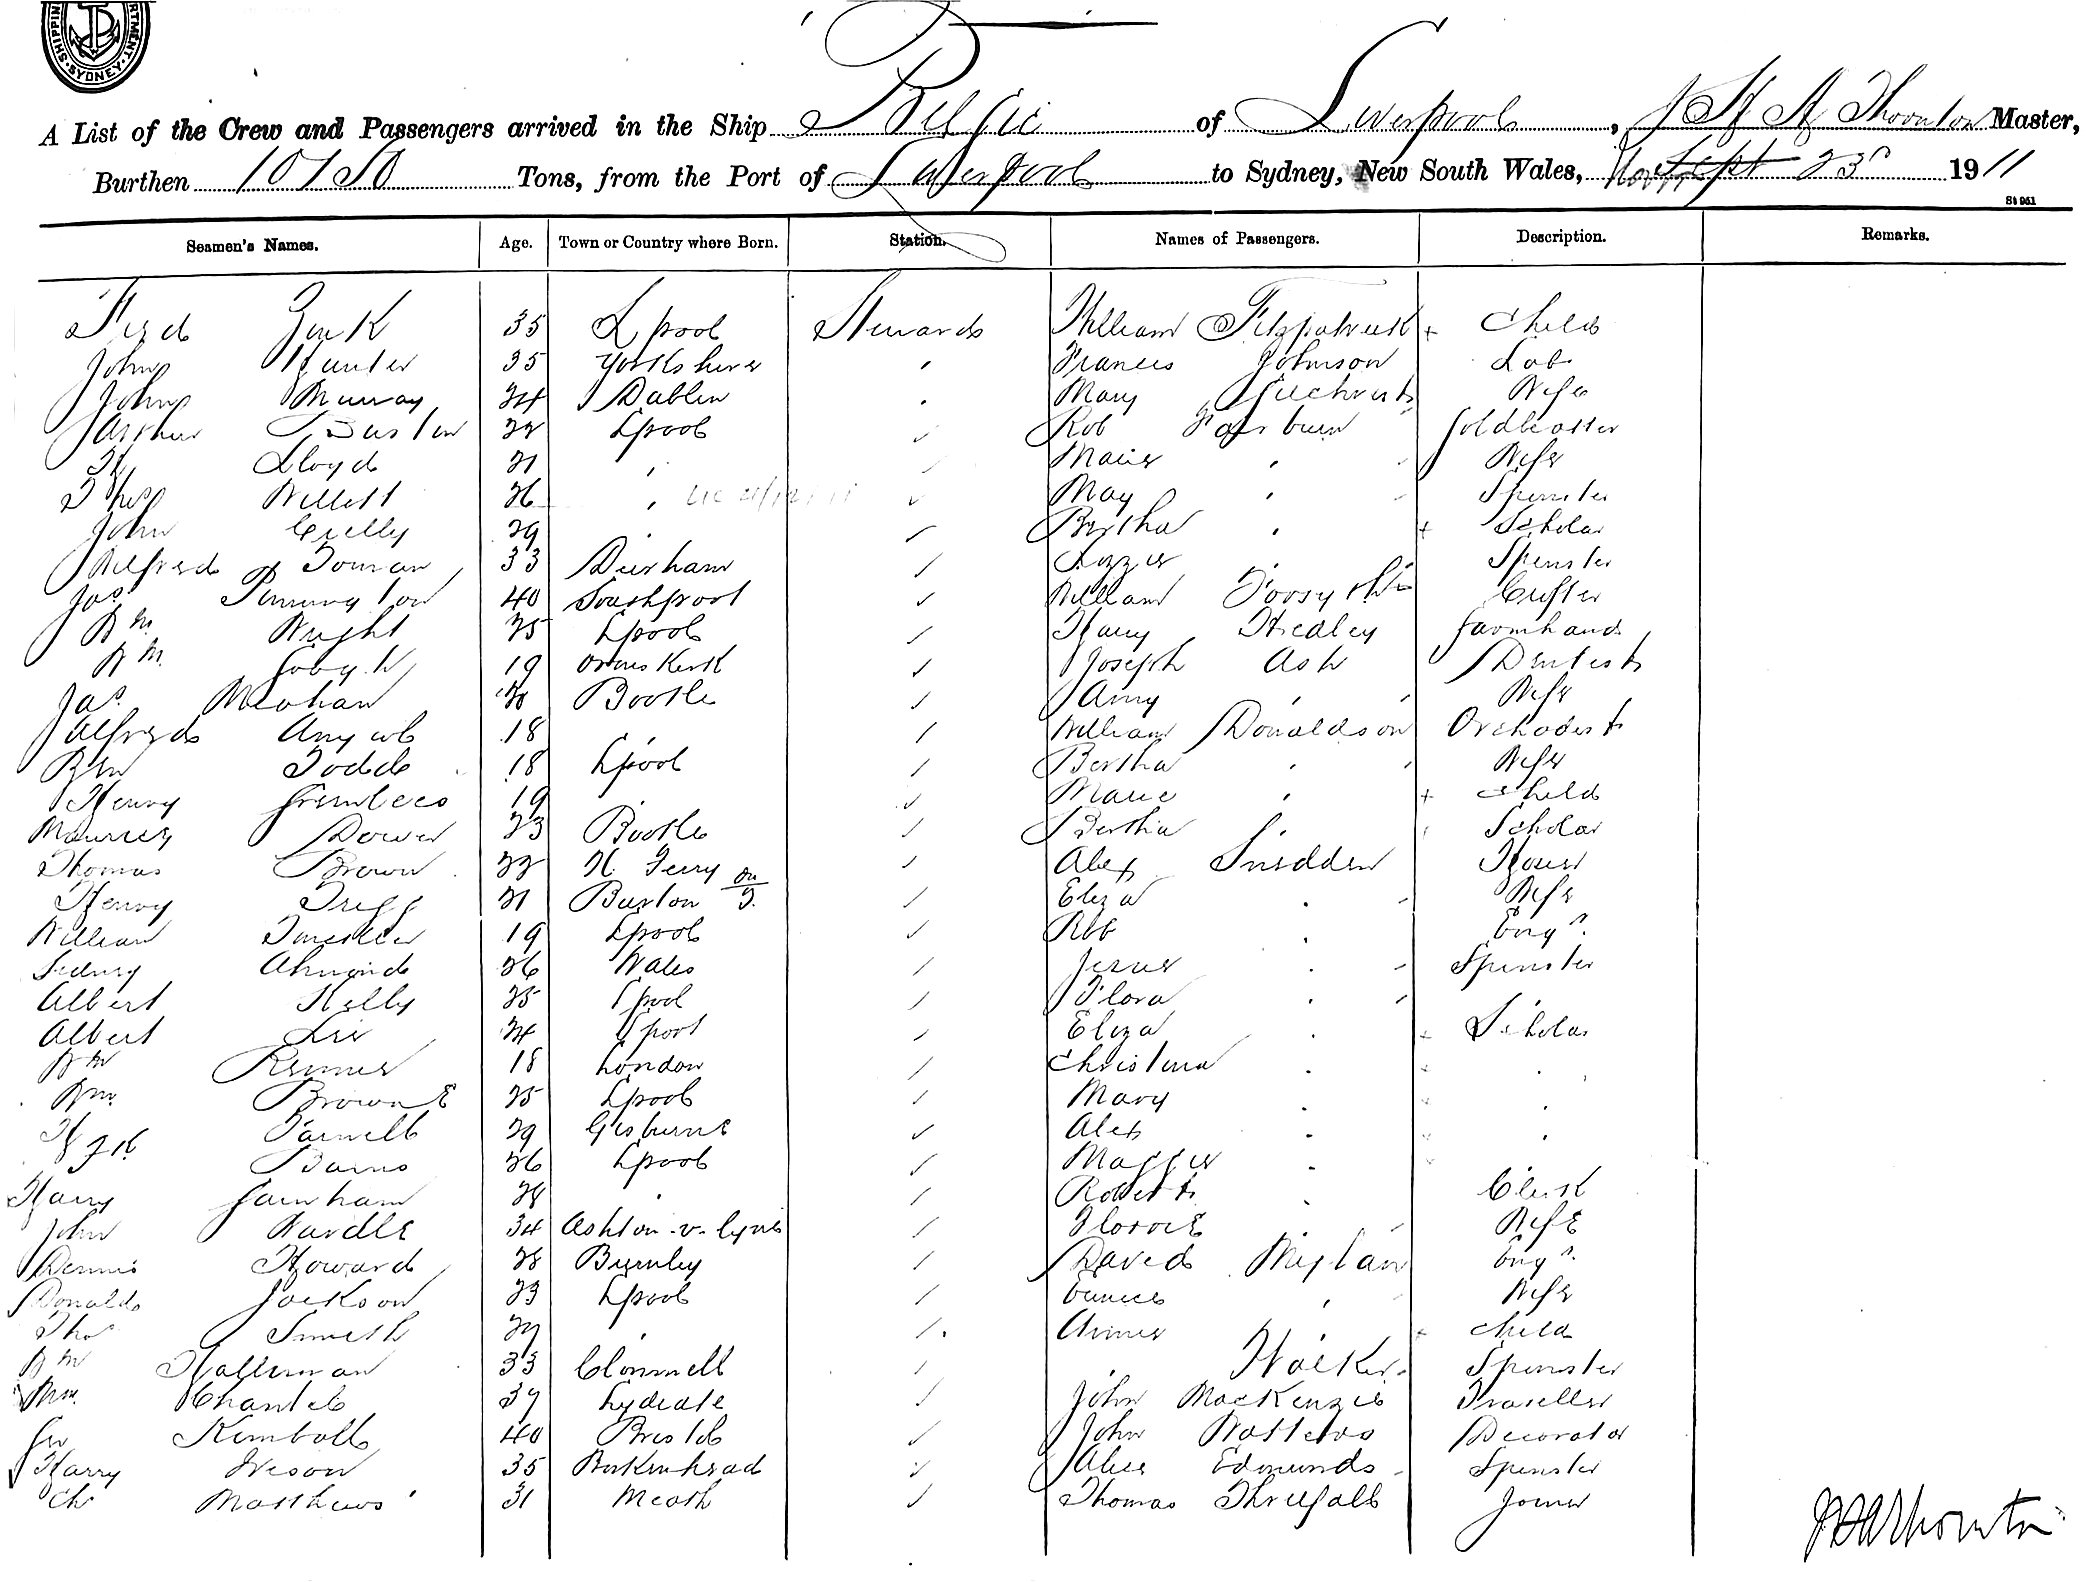 SHIPPING DEPARTMENT SYDNEY
A List of the Crew and Passengers arrived in the Ship Belgic of Liverpool, J H A Thornton Master,
Burthen 10150 Tons, from the Port of Liverpool to Sydney, New South Wales, Novr Sept 23rd 1911
St 961
Seamen's Names. Age. Town or Country where Born. Station. Names of Passengers. Description. Remarks.
Fred 35 Lpool Stewards William Fitzpatrick + Child
John Hunter 35 Yorkshire Francis Johnson Lab
John Murray 24 Dublin Mary Gilchrist Wife
Arthur Burton 22 Lpool Rob Fairburn Goldbeater
Lloyd 21 " Marie " Wife
Thos Willett 26 " May " Spinster
John Crelly 29 " Bertha " + Scholar
Wilfred Toman 33 Durham Lizzie " Spinster
Jas Pennington 40 Southport William Forsyth Cutter
Wm Wright 25 Lpool Harry Hedley Farmhand
Wm 19 Ormskirk Joseph Ash Dentist
Jas. Meohan Bootle Amy " Wife
Alfred 18 " William Donaldson Orchodist
Wm Todd 18 Lpool Bertha " Wife
Henry Greenlees 19 " Marie " + Child
Maurice Dower 23 Bootle Bertha " Scholar
Thomas Brown 22 N. Ferry Alex Snedden
Henry Trigg 21 Burton on T. Eliza " Wife
William 19 Lpool Rob " Engr.
Sidney Almond 26 Wales Jessie " Spinster
Albert Kelly 25 Lpool Flora "
Albert 24 Lpool Eliza " + Scholar
Wm Renner 18 London Christina " "
Wm. Browne 25 Lpool Mary " "
Parnell 29 Gisburne Alex " "
Barns 26 Lpool Maggie " "
Harry Farnham 28 " Robert " Clerk
John Wardle 34 Ashton-u-Lyne " Wife
Dennis Howard 28 Burnley David Engr.
Donald Jackson 23 Lpool Eunice " Wife
Thos Smith " " + Child
Wm Halleman 33 Clonmell Spinster
Wm. 37 Lydiate John MacKenzie Traveller
Geo Kimball 40 Bristol John Watters Decorator
Harry Iveson 35 Birkenhead Alice Edmunds Spinster
Ch Matthews 31 Meath Thomas Threlfall Joiner
JHAThornton